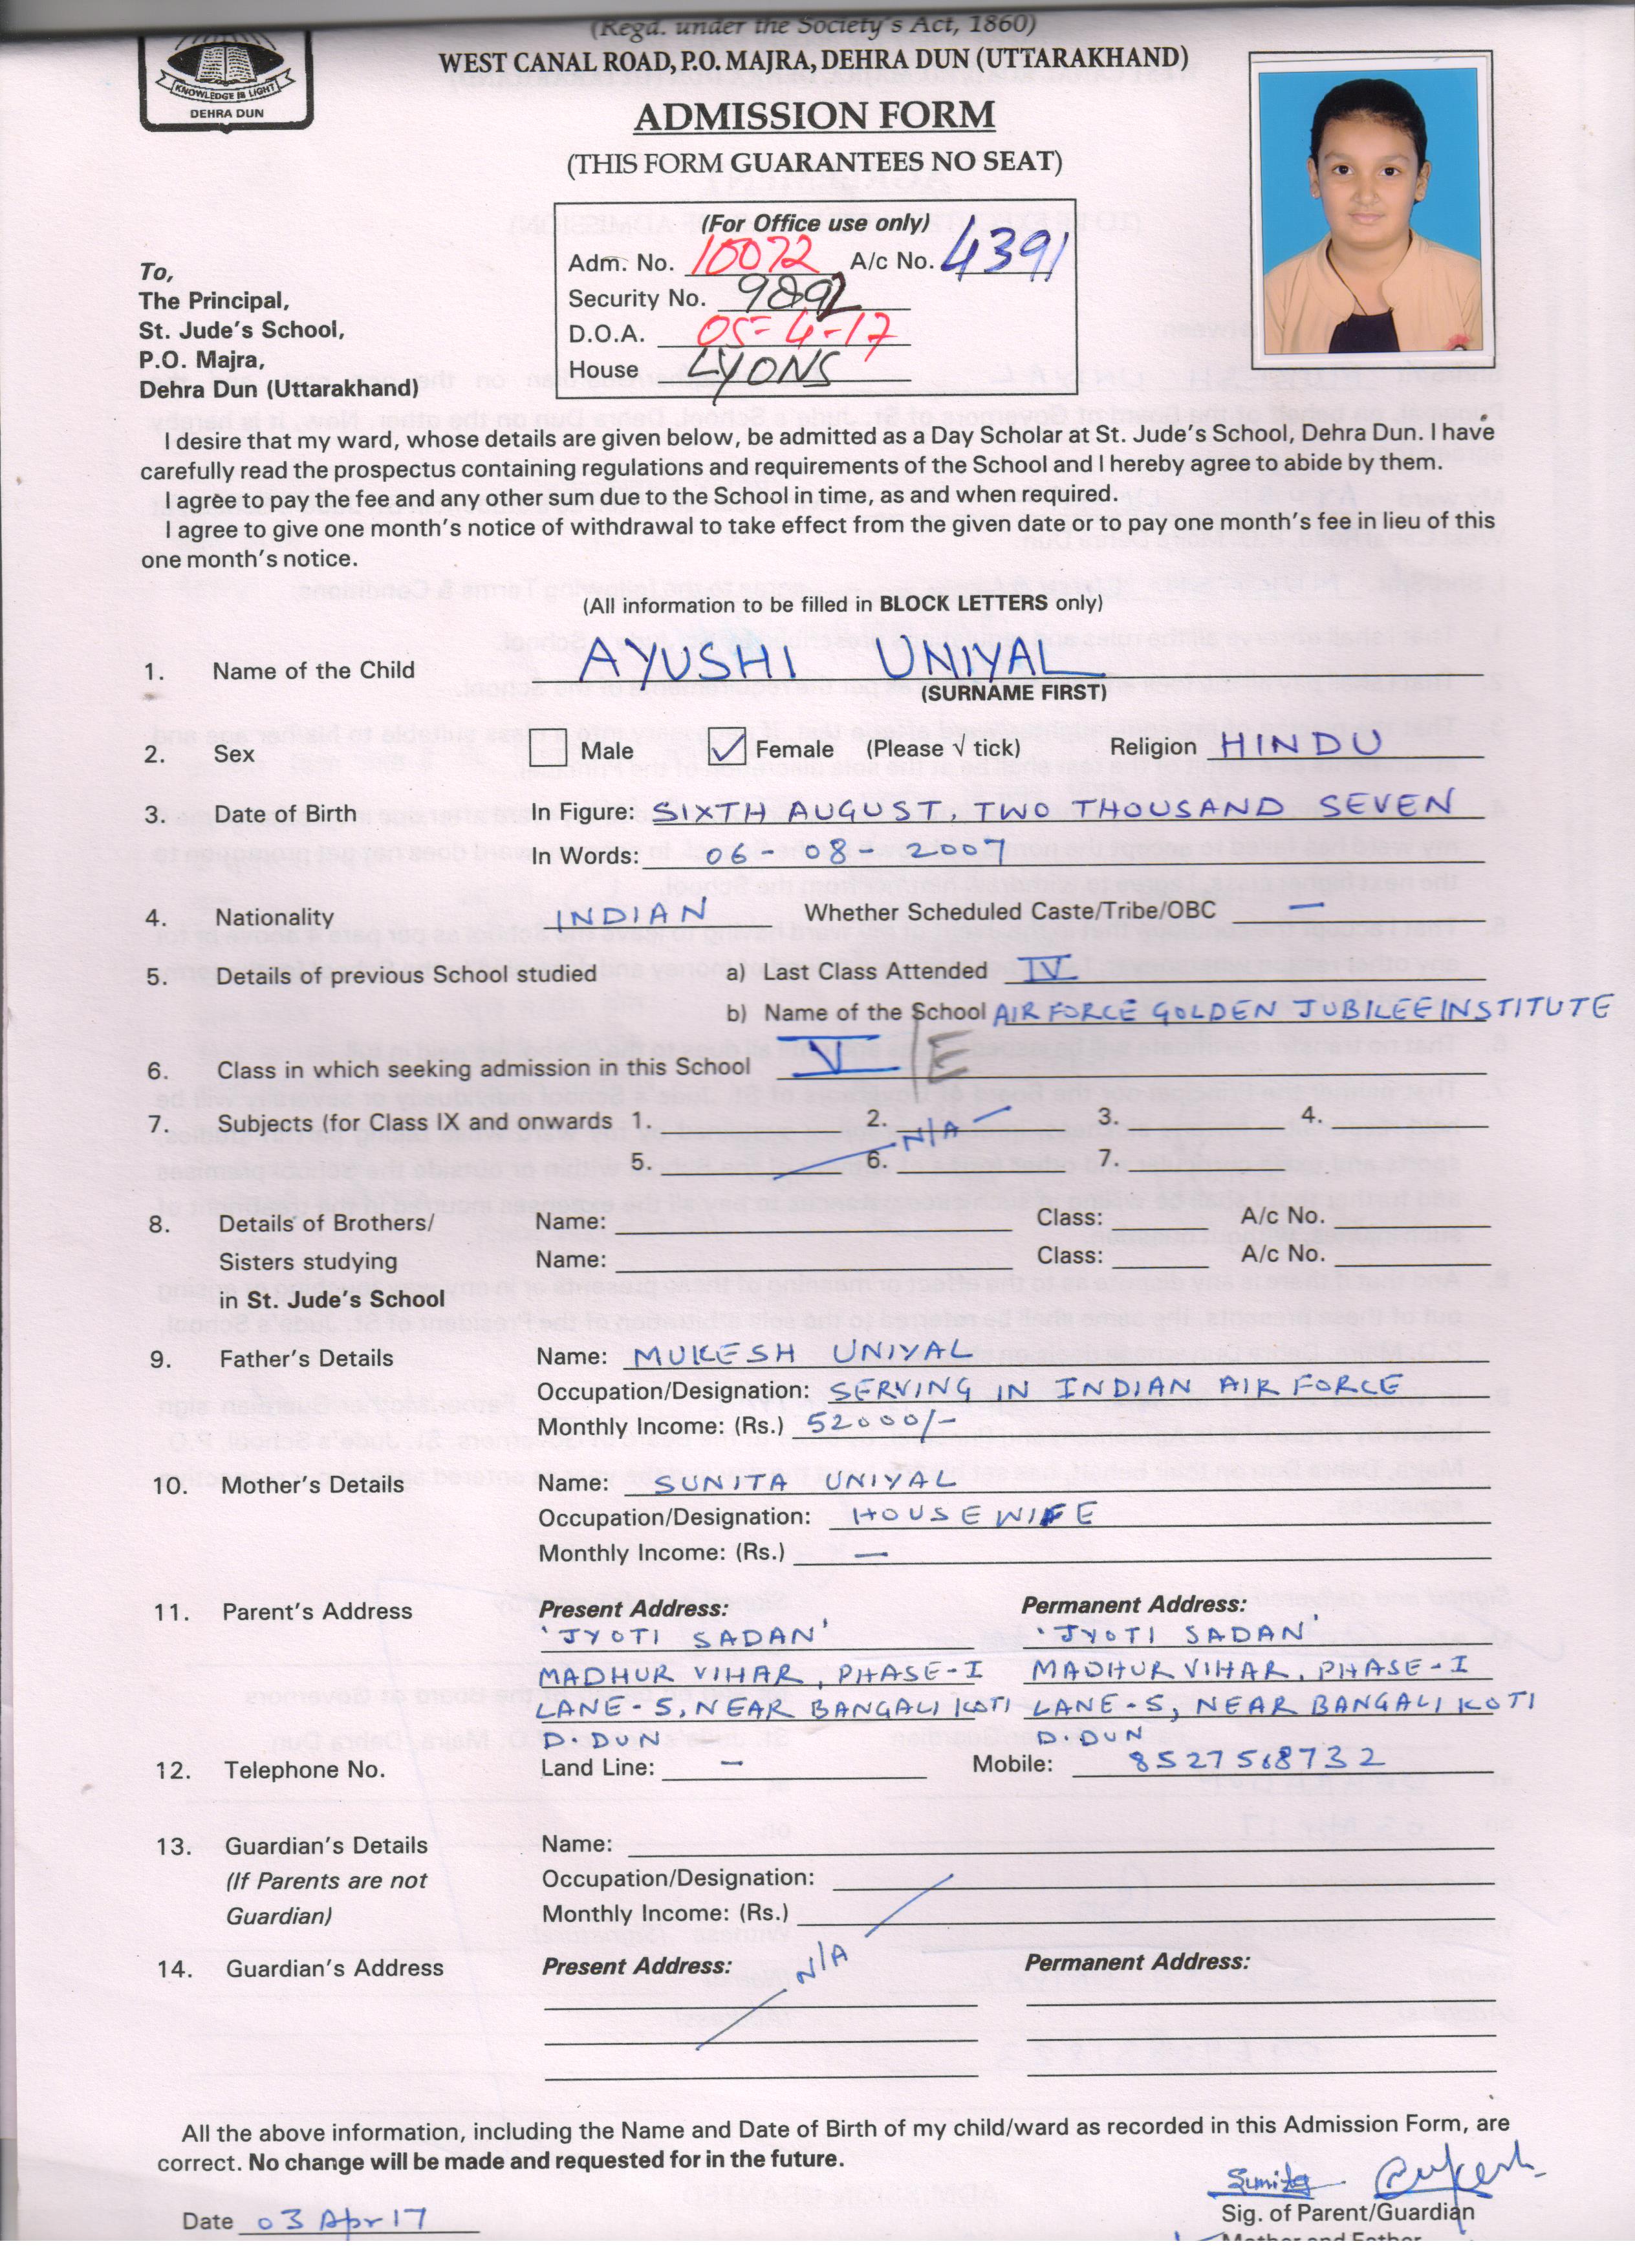 (Regd. under the Society's Act, 1860)
WEST CANAL ROAD, P.O. MAJRA, DEHRA DUN (UTTARAKHAND)
KNOWLEDGE IS LIGHT
DEHRA DUN
ADMISSION FORM
(THIS FORM GUARANTEES NO SEAT)
(For Office use only)
Adm. No. 10072 A/c No. 4391
Security No. 9892
D.O.A. 05-4-17
House LYONS
To,
The Principal,
St. Jude's School,
P.O. Majra,
Dehra Dun (Uttarakhand)
I desire that my ward, whose details are given below, be admitted as a Day Scholar at St. Jude's School, Dehra Dun. I have
carefully read the prospectus containing regulations and requirements of the School and I hereby agree to abide by them.
I agree to pay the fee and any other sum due to the School in time, as and when required.
I agree to give one month's notice of withdrawal to take effect from the given date or to pay one month's fee in lieu of this
one month's notice.
(All information to be filled in BLOCK LETTERS only)
1. Name of the Child AYUSHI UNIYAL
(SURNAME FIRST)
2. Sex Male ✓ Female (Please √ tick) Religion HINDU
3. Date of Birth In Figure: SIXTH AUGUST, TWO THOUSAND SEVEN
In Words: 06-08-2007
4. Nationality INDIAN Whether Scheduled Caste/Tribe/OBC —
5. Details of previous School studied a) Last Class Attended IV
b) Name of the School AIR FORCE GOLDEN JUBILEE INSTITUTE
6. Class in which seeking admission in this School V/E
7. Subjects (for Class IX and onwards 1. 2. 3. 4.
N/A
5. 6. 7.
8. Details of Brothers/ Name: Class: A/c No.
Sisters studying Name: Class: A/c No.
in St. Jude's School
9. Father's Details Name: MUKESH UNIYAL
Occupation/Designation: SERVING IN INDIAN AIR FORCE
Monthly Income: (Rs.) 52000/-
10. Mother's Details Name: SUNITA UNIYAL
Occupation/Designation: HOUSE WIFE
Monthly Income: (Rs.) —
11. Parent's Address Present Address: Permanent Address:
'JYOTI SADAN' 'JYOTI SADAN'
MADHUR VIHAR, PHASE-I MADHUR VIHAR, PHASE-I
LANE-5, NEAR BANGALI KOTI LANE-5, NEAR BANGALI KOTI
D.DUN D.DUN
12. Telephone No. Land Line: — Mobile: 8527568732
13. Guardian's Details Name:
(If Parents are not Occupation/Designation:
Guardian) Monthly Income: (Rs.)
N/A
14. Guardian's Address Present Address: Permanent Address:
All the above information, including the Name and Date of Birth of my child/ward as recorded in this Admission Form, are
correct. No change will be made and requested for in the future.
Sunita Mukesh
Date 03 Apr 17 Sig. of Parent/Guardian
Mother and Father